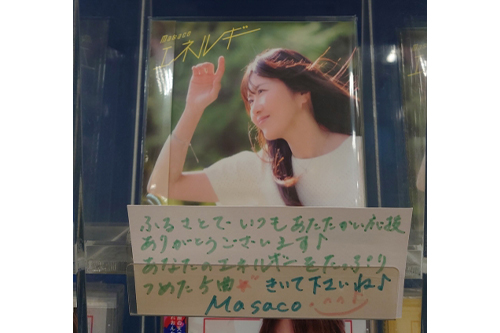 masaco
エネルギ
ふるさとで いつも あたたかい応援
ありがとうございます♪
あなたのエネルギーをたっぷり
つめた5曲 きいて下さいね♪
Masaco